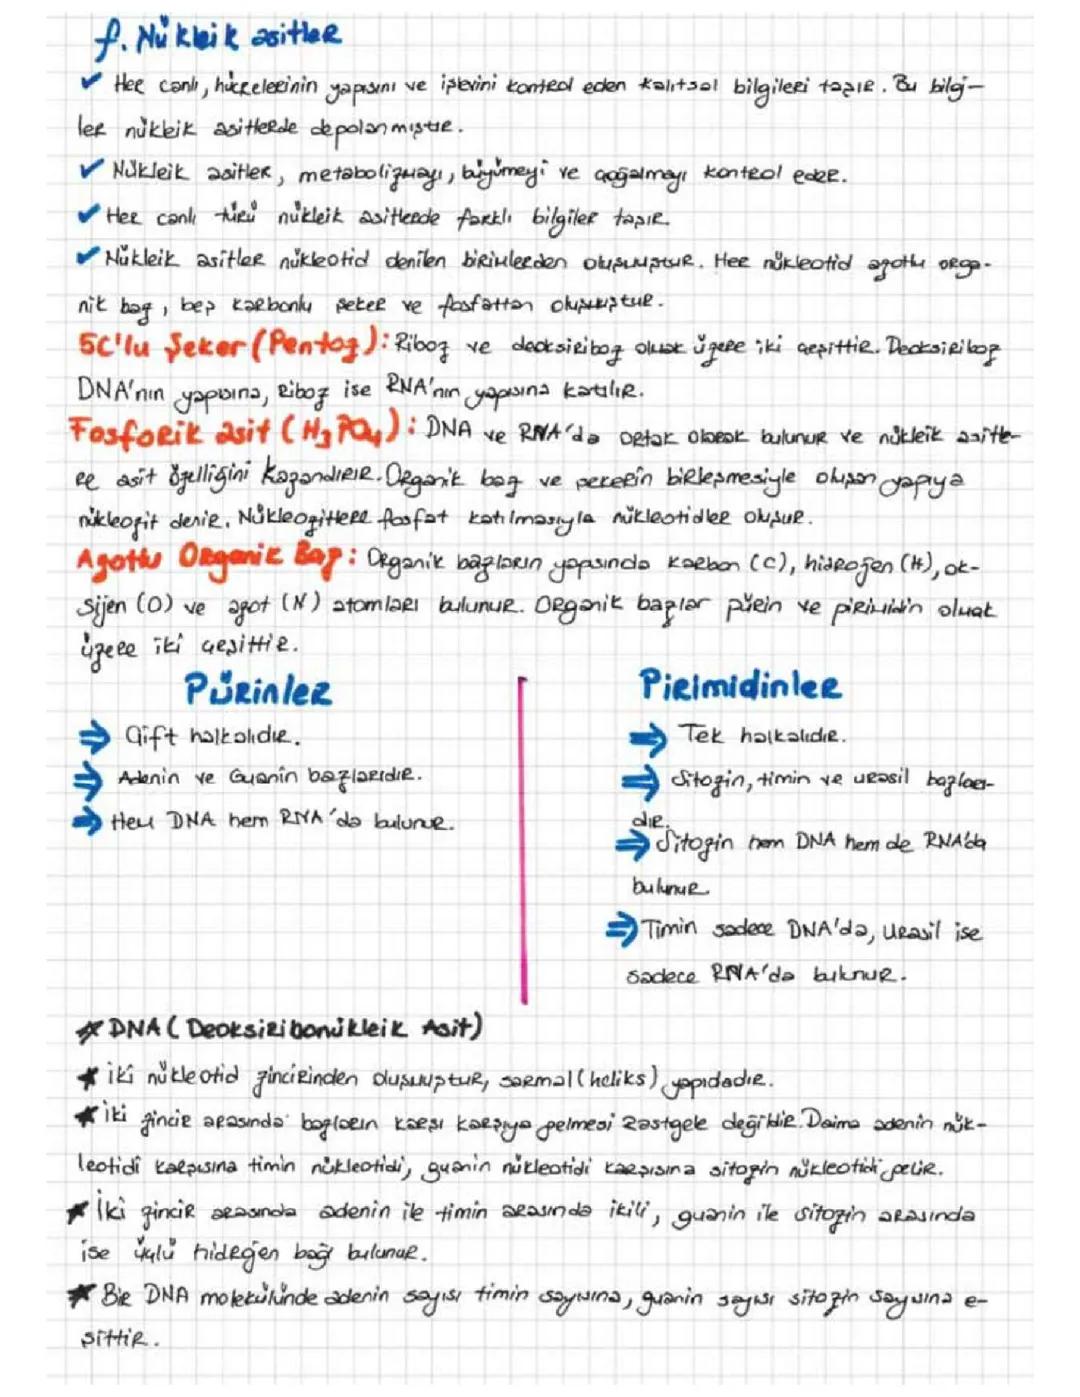 f. Nükleik asitler
✓ Her canlı, hücrelerinin yapısını ve işlevini kontrol eden kalıtsal bilgileri taşır. Bu bilgi-
ler nükleik asitlerde depolanmıştır.
✓ Nükleik asitler, metabolizmayı, büyümeyi ve çoğalmayı kontrol eder.
✓ Her canlı türü nükleik asitlerde farklı bilgiler taşır.
✓ Nükleik asitler nükleotid denilen birimlerden oluşmuştur. Her nükleotid azotlu orga-
nik baz, beş karbonlu şeker ve fosfattan oluşmuştur.
5C'lu Şeker (Pentoz): Riboz ve deoksiriboz olmak üzere iki çeşittir. Deoksiriboz
DNA'nın yapısına, riboz ise RNA'nın yapısına katılır.
Fosforik asit (H3PO4): DNA ve RNA'da ortak olarak bulunur ve nükleik asitle-
re asit özelliğini kazandırır. Organik baz ve şekerin birleşmesiyle oluşan yapıya
nükleozit denir. Nükleozitlere fosfat katılmasıyla nükleotidler oluşur.
Azotlu Organik Baz: Organik bazların yapısında karbon (C), hidrojen (H), ok-
sijen (O) ve azot (N) atomları bulunur. Organik bazlar pürin ve pirimidin olmak
üzere iki çeşittir.
Pürinler
⇒ Çift halkalıdır.
⇒ Adenin ve Guanin bazlarıdır.
⇒ Hem DNA hem RNA'da bulunur.
Pirimidinler
⇒ Tek halkalıdır.
⇒ Sitozin, timin ve urasil bazları-
dır.
⇒ Sitozin hem DNA hem de RNA'da
bulunur.
⇒ Timin sadece DNA'da, Urasil ise
sadece RNA'da bulunur.
★ DNA (Deoksiribonükleik Asit)
★ İki nükleotid zincirinden oluşmuştur, sarmal (heliks) yapıdadır.
★ İki zincir arasında bazların karşı karşıya gelmesi rastgele değildir. Daima adenin nük-
leotidi karşısına timin nükleotidi, guanin nükleotidi karşısına sitozin nükleotidi gelir.
★ İki zincir arasında adenin ile timin arasında ikili, guanin ile sitozin arasında
ise üçlü hidrojen bağı bulunur.
★ Bir DNA molekülünde adenin sayısı timin sayısına, guanin sayısı sitozin sayısına e-
şittir.